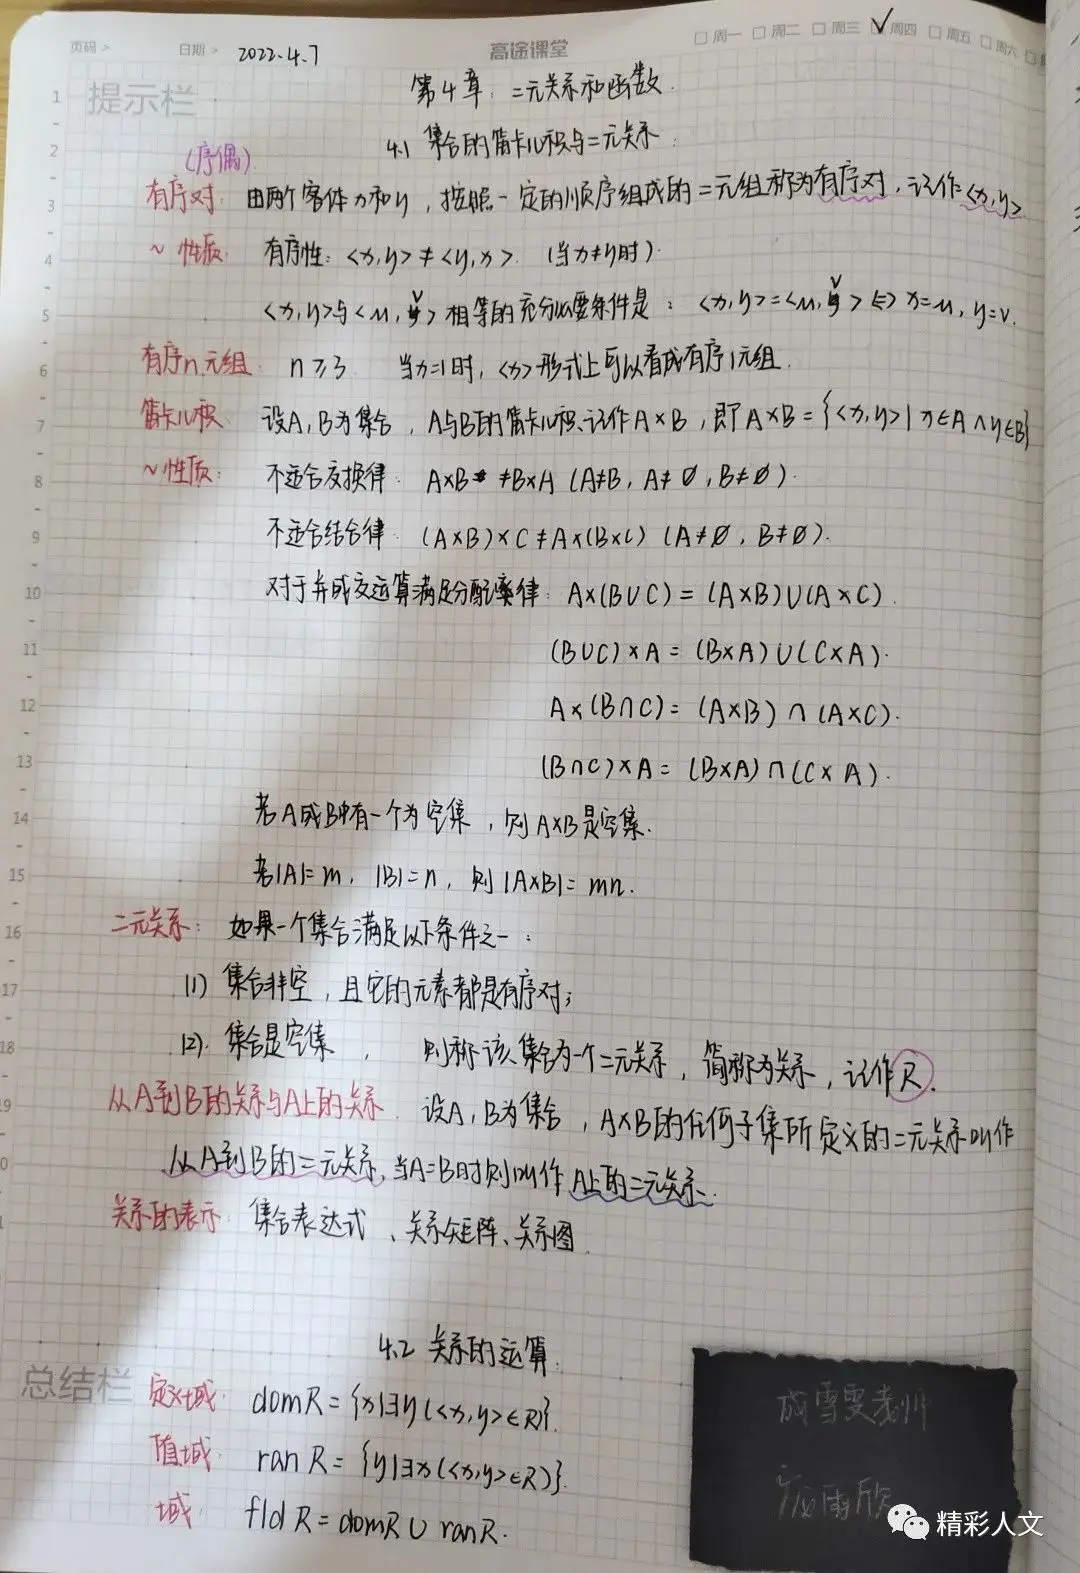 页码 > 日期 > 2022.4.7 高途课堂 周一 周二 周三 ✓周四 周五 周六
提示栏
第4章:二元关系和函数.
4.1 集合的笛卡儿积与二元关系:
(序偶)
有序对: 由两个客体x和y,按照一定的顺序组成的二元组称为有序对,记作<x,y>
~性质: 有序性: <x,y>≠<y,x>. (当x≠y时).
<x,y>与<u,v>相等的充分必要条件是: <x,y>=<u,v>⇔x=u,y=v.
有序n元组: n≥3 当n=1时,<x>形式上可以看成有序1元组.
笛卡儿积: 设A,B为集合,A与B的笛卡儿积记作A×B,即A×B={<x,y>|x∈A∧y∈B}
~性质: 不适合交换律: A×B≠B×A (A≠B,A≠∅,B≠∅).
不适合结合律: (A×B)×C≠A×(B×C) (A≠∅,B≠∅).
对于并或交运算满足分配律: A×(B∪C)=(A×B)∪(A×C).
(B∪C)×A=(B×A)∪(C×A).
A×(B∩C)=(A×B)∩(A×C).
(B∩C)×A=(B×A)∩(C×A).
若A或B中有一个为空集,则A×B是空集.
若|A|=m,|B|=n,则|A×B|=mn.
二元关系: 如果一个集合满足以下条件之一:
(1) 集合非空,且它的元素都是有序对;
(2). 集合是空集, 则称该集合为一个二元关系,简称为关系,记作R.
从A到B的关系与A上的关系: 设A,B为集合,A×B的任何子集所定义的二元关系叫作
从A到B的二元关系,当A=B时则叫作A上的二元关系.
关系的表示: 集合表达式、关系矩阵、关系图.
4.2 关系的运算.
总结栏
定义域: domR={x|∃y(<x,y>∈R)}.
值域: ranR={y|∃x(<x,y>∈R)}.
域: fldR=domR∪ranR.
成雪雯老师
雨欣
精彩人文